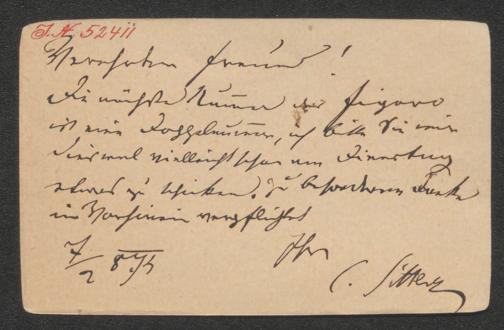 J. N. 52411
Verehrter Freund!
Die nächste Nummer des Figaro
ist eine Doppelnummer, ich bitte Sie mir
diesmal vielleicht schon am Dienstag
etwas zu schicken. Zu besonderem Danke
im Vorhinein verpflichtet
Ihr
7/2
C. Sitter